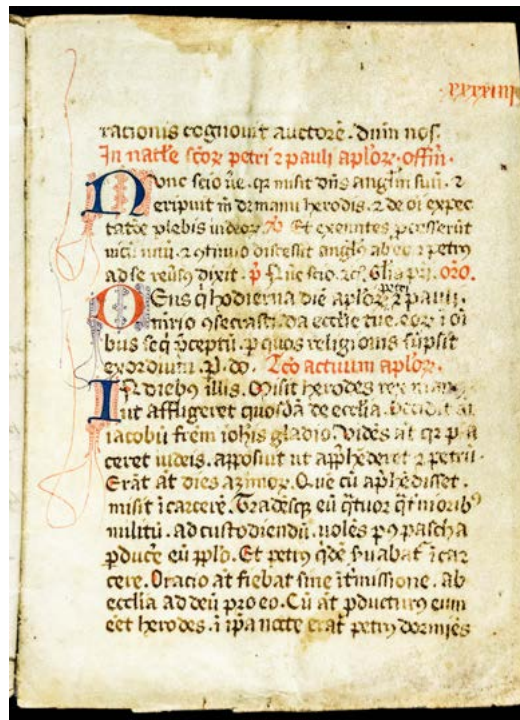 xxxxiiij
racionis cognouit auctorē. dnm nos.
In natłe scōꝝ petri ⁊ pauli aplōꝝ. offm̄.
Nunc scio ūe. qꝛ misit dn̄s anglm̄ suū. ⁊
eripuit m̄ de manu herodis. ⁊ de oī expec
tatōe plebis iudeoꝝ. Et exeuntes ꝓcesserūt
uicū unū. ⁊ ꝯtinuo discessit angl'us ab eo. ⁊ petrꝰ
ad se reūsꝰ dixit. p̄ Nūc scio. Glia pri. oro.
DEus q̄ hodierna diē aplōꝝ petri ⁊ pauli.
mr̄irio ꝯsecrasti. da ecclie tue. eoꝝ ī oī
bus seq̄ p̄ceptū. ꝑ quos religionis sūpsit
exordium. ꝑ. do. Lc̄o actuum aplōꝝ.
IN diebus illis. Misit herodes rex manꝰ.
ut affligeret quosdā de ecclia. Occidit āt
iacobū frēm iohis gladio. Vidēs āt qꝛ pla
ceret iudeis. apposuit ut apphēderet ⁊ petrū.
Erāt āt dies azimoꝝ. Que cū aphēdisset.
misit ī carcerē. Tradēsqꝫ eū qͣtuor qͣt'nioribꝰ
militū. ad custodiendū. uolēs pꝰ pascha
ꝓducē eū pplo. Et petrꝰ qdē s̄uabat' ī car
cere. Oracio āt fiebat sine īt'missione. ab
ecclia ad deū pro eo. Cū āt ꝓducturꝰ eum
eēt herodes. ī ip̄a nocte erat petrꝰ dormiēs